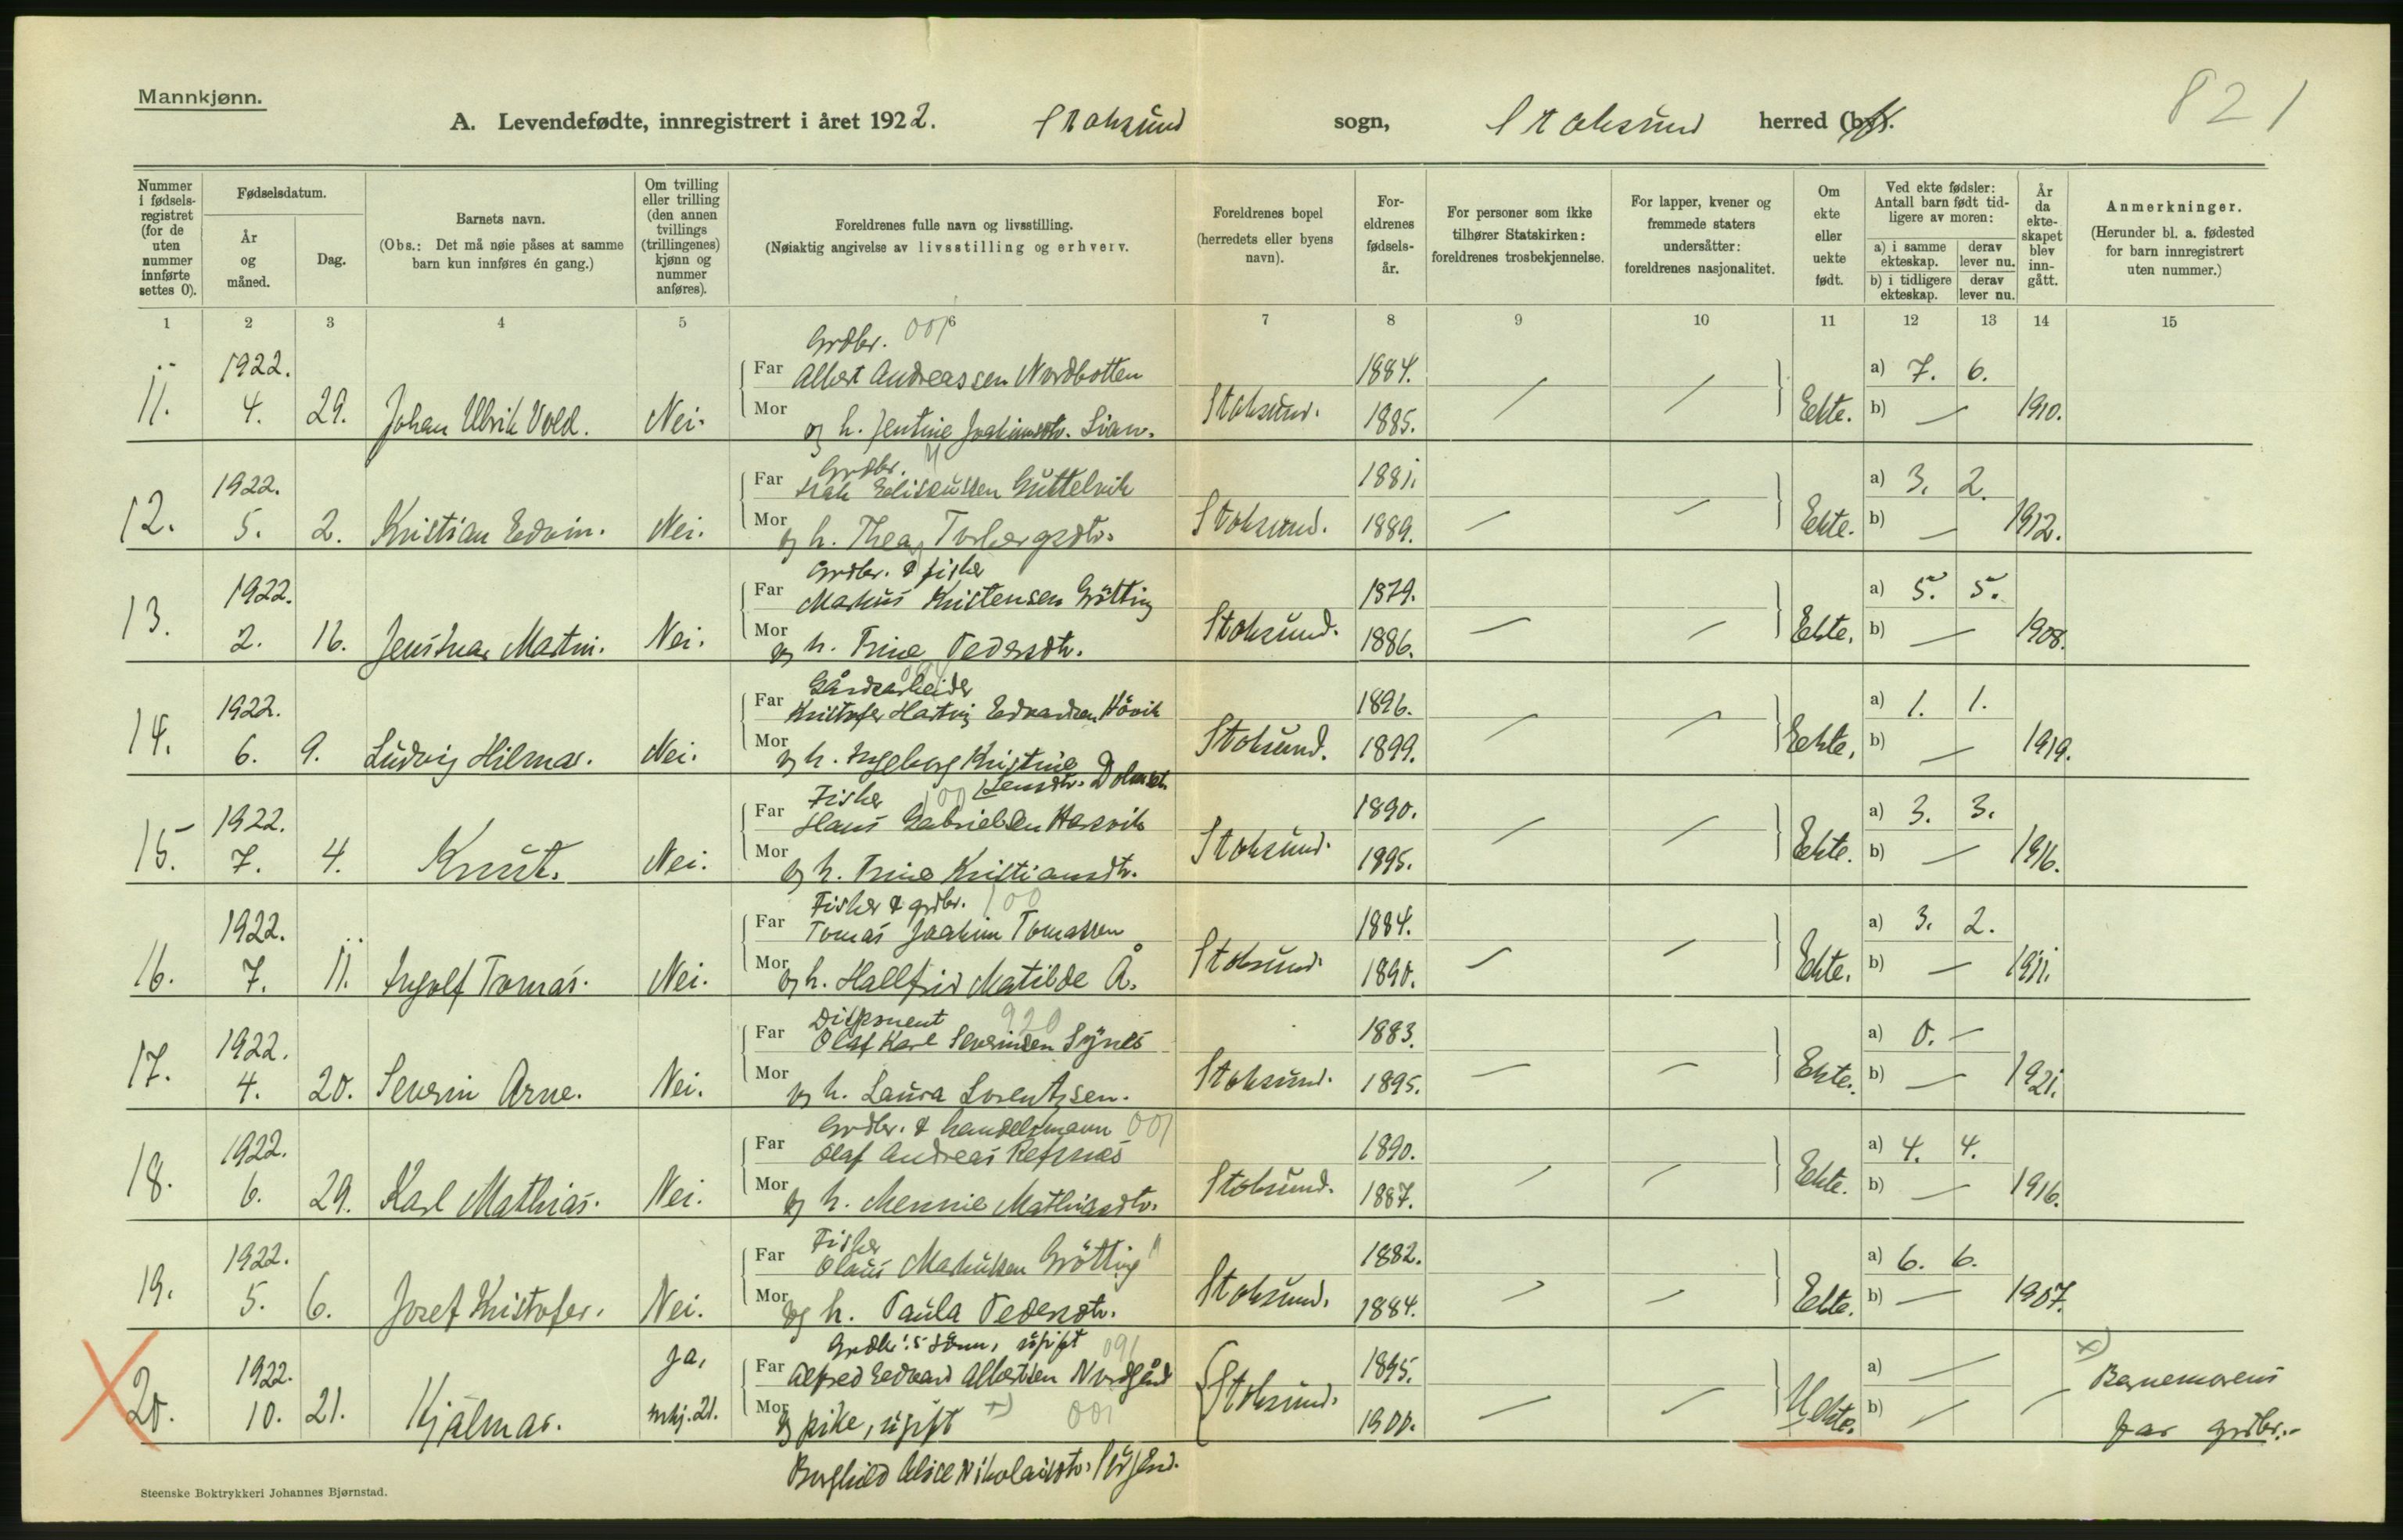 Mannkjønn.
821
A. Levendefødte, innregistrert i året 1922. Stoksund sogn, Stoksund herred (by).
Nummer i fødsels-registret (for de uten nummer innførte settes 0).
Fødselsdatum.
År og måned.
Dag.
Barnets navn.
(Obs.: Det må nøie påses at samme barn kun innføres én gang.)
Om tvilling eller trilling (den annen tvillings (trillingenes) kjønn og nummer anføres).
Foreldrenes fulle navn og livsstilling.
(Nøiaktig angivelse av livsstilling og erhverv.
Foreldrenes bopel (herredets eller byens navn).
For-eldrenes fødsels-år.
For personer som ikke tilhører Statskirken: foreldrenes trosbekjennelse.
For lapper, kvener og fremmede staters undersåtter: foreldrenes nasjonalitet.
Om ekte eller uekte født.
Ved ekte fødsler: Antall barn født tid-ligere av moren:
a) i samme ekteskap. derav lever nu.
b) i tidligere ekteskap. derav lever nu.
År da ekte-skapet blev inn-gått.
Anmerkninger.
(Herunder bl. a. fødested for barn innregistrert uten nummer.)
1 2 3 4 5 6 7 8 9 10 11 12 13 14 15
Grdbr. 001
1922. Far Albert Andreassen Nordbotten 1884. a) 7. 6.
11. 4. 29. Johan Ulrik Vold. Nei. Mor og h. Jentine Joakimsdtr. Lian. Stoksund. 1885. Ekte. b) — 1910.
Grdbr. "
1922. Far Isak Eliseussen Guttelvik 1881. a) 3. 2.
12. 5. 2. Kristian Edvin. Nei. Mor og h. Thea Torbergsdtr. Stoksund. 1889. Ekte. b) — 1912.
Grdbr. & fisker
1922. Far Markus Kristensen Grötting 1879. a) 5. 5.
13. 2. 16. Jens Ivar Martin. Nei. Mor og h. Trine Pedersdtr. Stoksund. 1886. Ekte. b) — 1908.
Gårdsarbeider
1922. Far Kristofer Hartvig Edvardsen Hövik 1896. a) 1. 1.
14. 6. 9. Ludvig Hilmar. Nei. Mor og h. Ingeborg Kristine Stoksund. 1899. Ekte. b) — 1919.
Jensdtr.
Fisker 100
1922. Far Hans Gabrielsen Harsvik 1890. a) 3. 3.
15. 7. 4. Knut. Nei. Mor og h. Trine Kristiansdtr. Stoksund. 1895. Ekte. b) — 1916.
Fisker & grdbr. 100
1922. Far Tomas Joakim Tomassen 1884. a) 3. 2.
16. 7. 11. Ingolf Tomas. Nei. Mor og h. Hallfrid Matilde Å. Stoksund. 1890. Ekte. b) — 1911.
Disponent 920
1922. Far Olaf Karl Severinsen Synes 1883. a) 0. —
17. 4. 20. Severin Arne. Nei. Mor og h. Laura Lorentzsen. Stoksund. 1895. Ekte. b) — 1921.
Grdbr. & handelsmann 001
1922. Far Olaf Andreas Refsnes 1890. a) 4. 4.
18. 6. 29. Karl Mathias. Nei. Mor og h. Mennie Mathiasdtr. Stoksund. 1887. Ekte. b) — 1916.
Fisker
1922. Far Olaus Markussen Grötting 1882. a) 6. 6.
19. 5. 6. Josef Kristofer. Nei. Mor og h. Paula Pedersdtr. Stoksund. 1884. Ekte. b) — 1907.
Grdbr.'s sönn, ugift 091
1922. Ja, Far Alfred Edvard Albertsen Nordgård 1895. a) — +)
20. 10. 21. Hjalmar. mkj. 21. Mor og pike, ugift +) 001 Stoksund. 1900. Uekte. b) — Barnemorens far grdbr.
Borghild Alice Nikolaisdtr.
Steenske Boktrykkeri Johannes Bjørnstad.